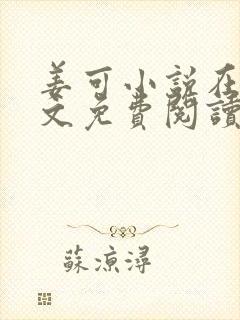 姜可小說在
文免費閱讀
蘇涼潯